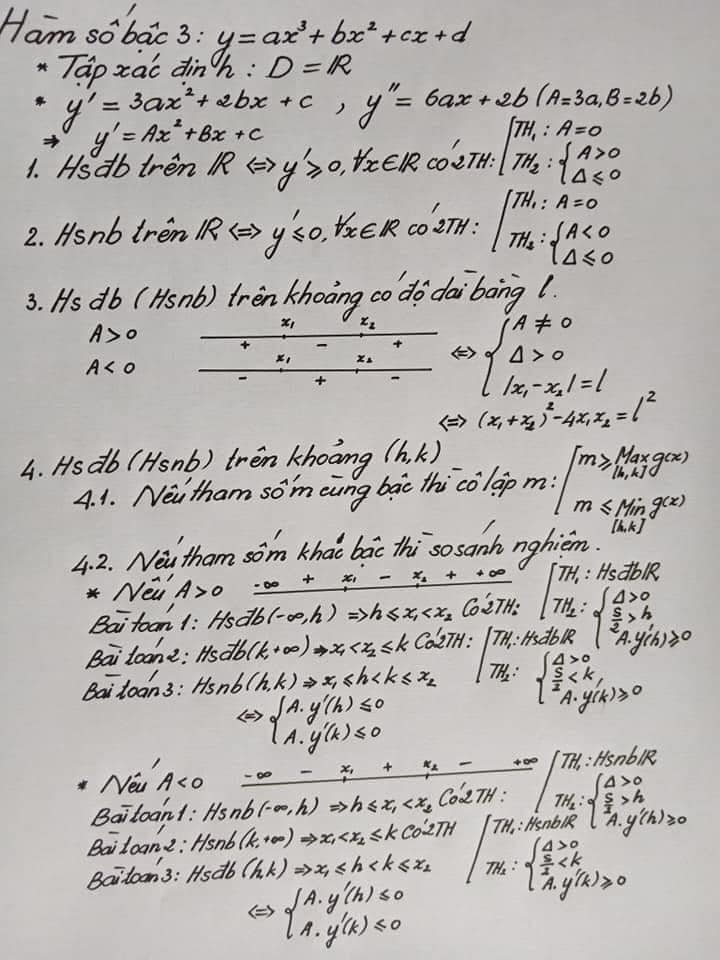 Hàm số bậc 3: y = ax³ + bx² + cx + d
* Tập xác định : D = ℝ
* y' = 3ax² + 2bx + c , y'' = 6ax + 2b (A=3a, B=2b)
⇒ y' = Ax² + Bx + c
1. Hsđb trên ℝ ⇔ y' ≥ 0, ∀x∈ℝ có 2TH: [TH₁ : A=0
TH₂ : {A>0
Δ ≤ 0
2. Hsnb trên ℝ ⇔ y' ≤ 0, ∀x∈ℝ có 2TH: [TH₁ : A=0
TH₂ : {A<0
Δ ≤ 0
3. Hs đb (Hsnb) trên khoảng có độ dài bằng l.
A>0 x₁ x₂ + − +
A<0 x₁ x₂ − + −
⇔ {A ≠ 0
Δ > 0
|x₁ - x₂| = l
⇔ (x₁+x₂)² - 4x₁x₂ = l²
4. Hsđb (Hsnb) trên khoảng (h,k)
4.1. Nếu tham số m cùng bậc thì cô lập m: [m ≥ Max g(x)
[h,k]
m ≤ Min g(x)
[h,k]
4.2. Nếu tham số m khác bậc thì so sánh nghiệm.
* Nếu A>0 -∞ + x₁ − x₂ + +∞
Bài toán 1: Hsđb (-∞,h) ⇒ h ≤ x₁ < x₂ Có 2TH: [TH₁ : Hsđb ℝ
TH₂ : {Δ>0
S/2 > h
A.y'(h) ≥ 0
Bài toán 2: Hsđb (k,+∞) ⇒ x₁ < x₂ ≤ k Có 2TH: [TH₁ : Hsđb ℝ
TH₂ : {Δ>0
S/2 < k,
A.y'(k) ≥ 0
Bài toán 3: Hsnb (h,k) ⇒ x₁ ≤ h < k ≤ x₂
⇔ {A.y'(h) ≤ 0
A.y'(k) ≤ 0
* Nếu A<0 -∞ − x₁ + x₂ − +∞
Bài toán 1: Hsnb (-∞,h) ⇒ h ≤ x₁ < x₂ Có 2TH: [TH₁ : Hsnb ℝ
TH₂ : {Δ>0
S/2 > h
A.y'(h) ≥ 0
Bài toán 2: Hsnb (k,+∞) ⇒ x₁ < x₂ ≤ k Có 2TH [TH₁ : Hsnb ℝ
TH₂ : {Δ>0
S/2 < k
A.y'(k) ≥ 0
Bài toán 3: Hsđb (h,k) ⇒ x₁ ≤ h < k ≤ x₂
⇔ {A.y'(h) ≤ 0
A.y'(k) ≤ 0